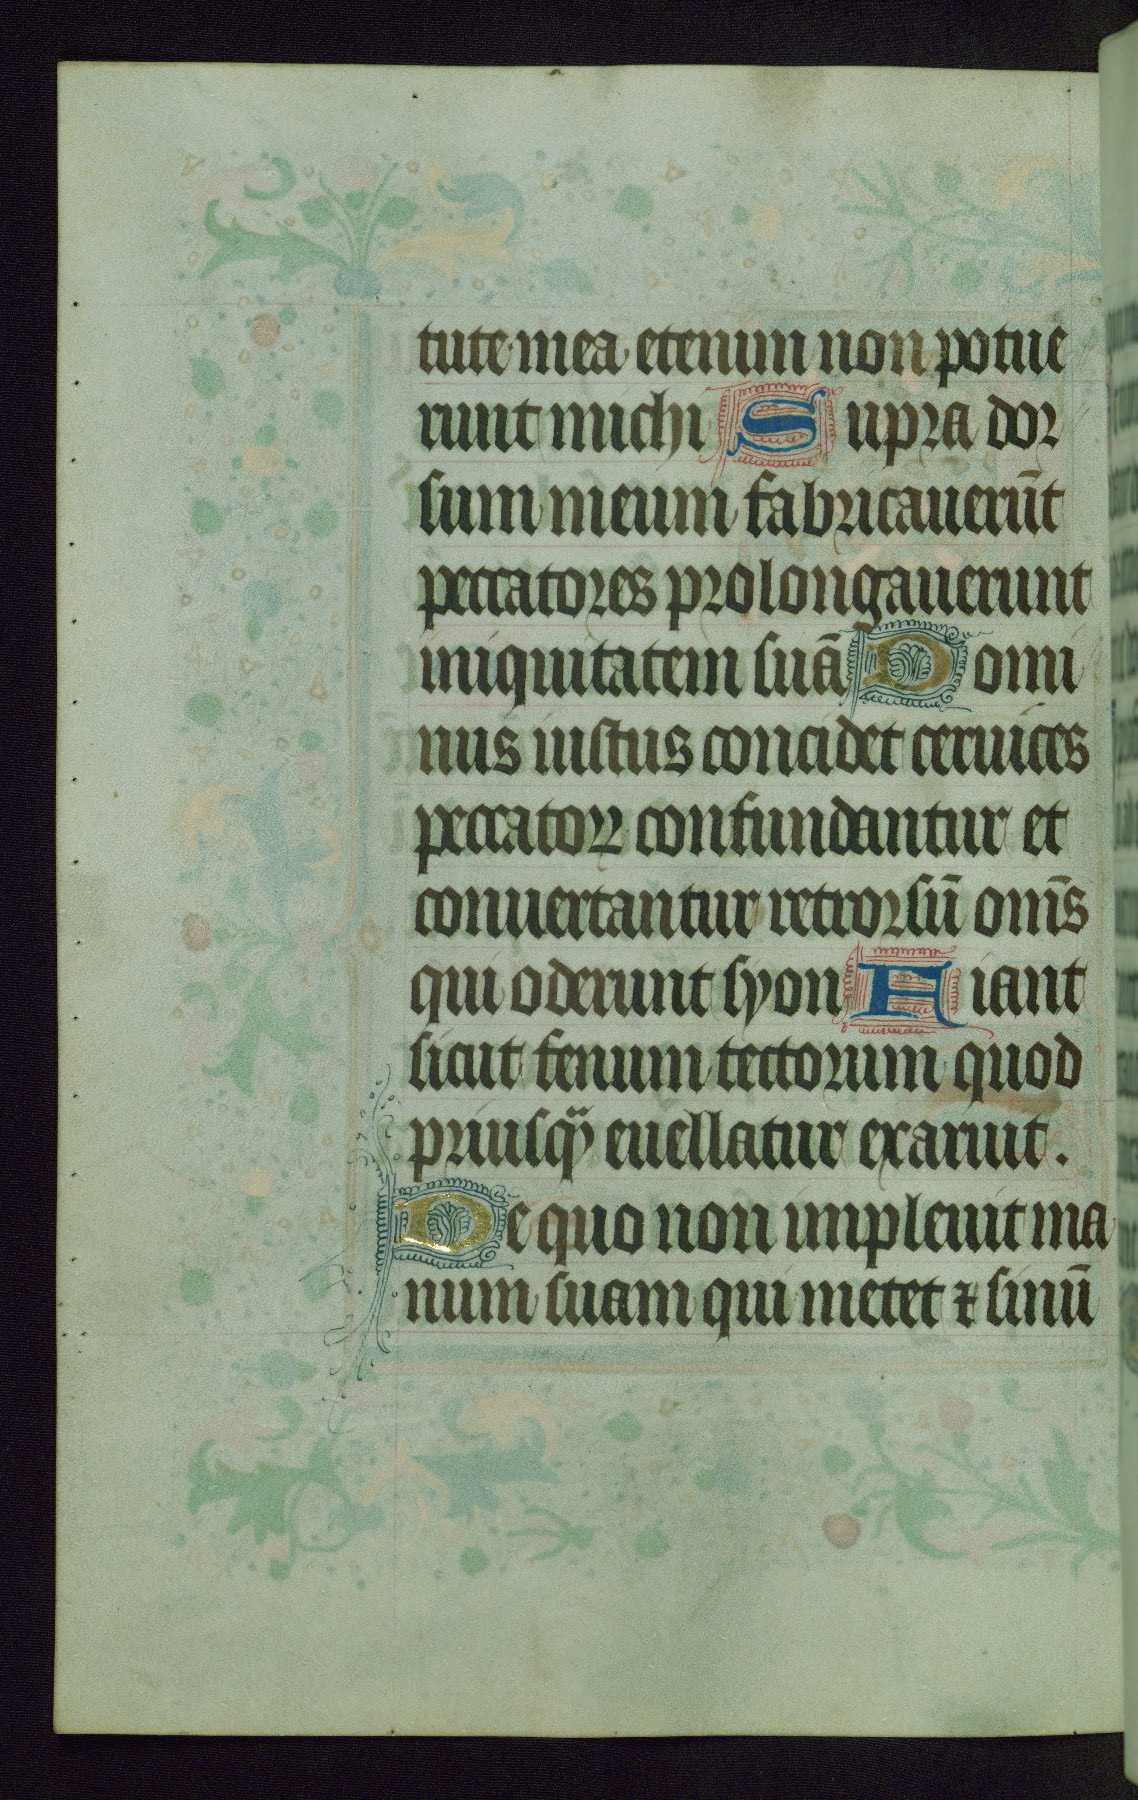 tute mea etenim non potue
runt michi Supra dor
sum meum fabricauerūt
peccatores prolongauerunt
iniquitatem suā Domi
nus iustus concidet ceruices
peccatoꝝ confundantur et
conuertantur retrorsū om̄s
qui oderunt syon Fiant
sicut fenum tectorum quod
priusqᷓ euellatur exaruit.
De quo non impleuit ma
num suam qui metet ⁊ sinū